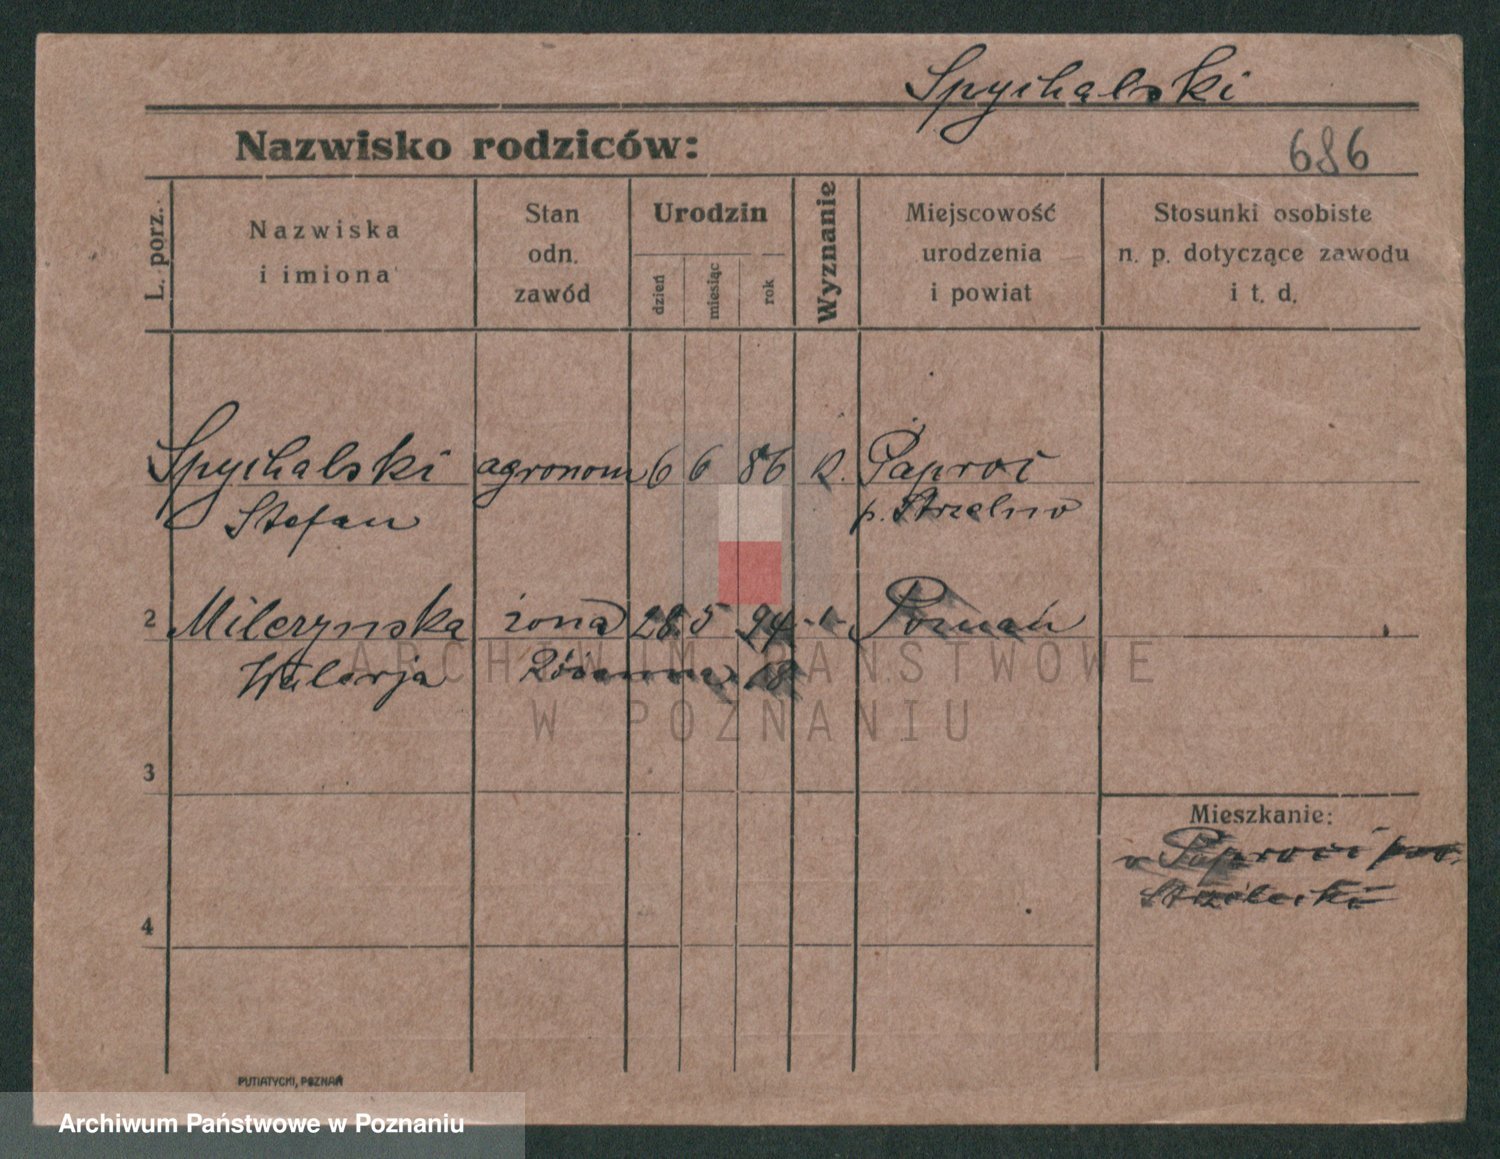 Spychalski
Nazwisko rodziców:
686
L. porz.
Nazwiska
i imiona
Stan
odn.
zawód
Urodzin
dzień
miesiąc
rok
Wyznanie
Miejscowość
urodzenia
i powiat
Stosunki osobiste
n. p. dotyczące zawodu
i t. d.
Spychalski agronom 6 6 86 k. Paproć
Stefan p. Strzelno
2 Milczynska żona 28 5 94 -"- Poznań
Walerja
ARCHIWUM PAŃSTWOWE
W POZNANIU
3
Mieszkanie:
v Paproci pow.
Strzelecki
4
PUTIATYCKI, POZNAŃ
Archiwum Państwowe w Poznaniu